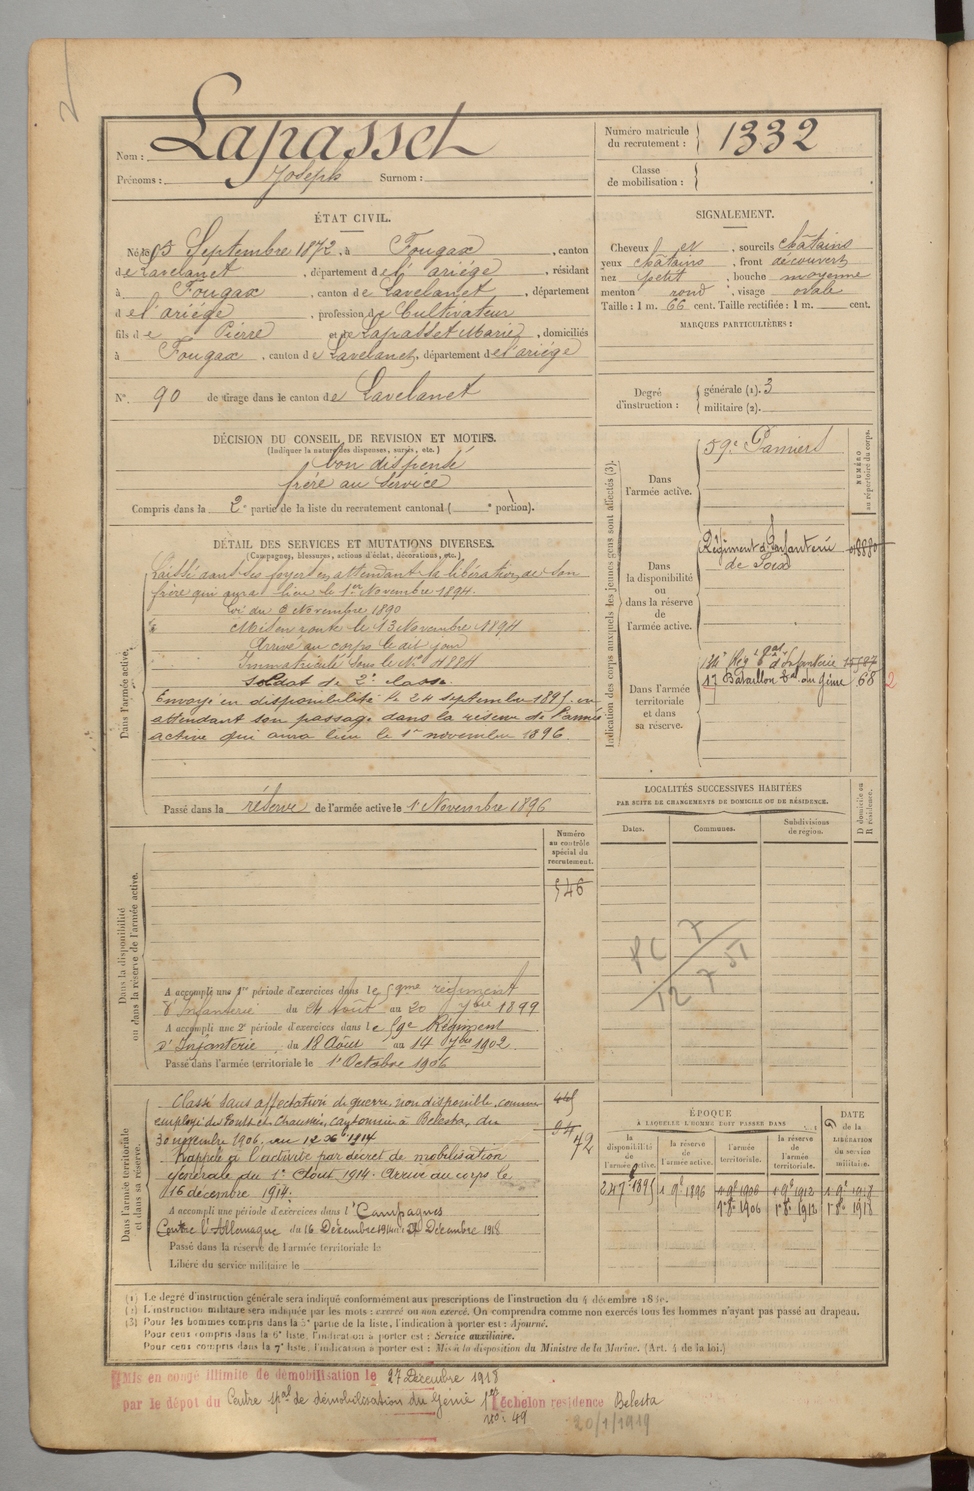 Nom : Lapasset
Prénoms : Joseph Surnom :
Numéro matricule du recrutement : 1332
Classe de mobilisation :
ÉTAT CIVIL.
Né le 5 Septembre 1872, à Fougax, canton
de Lavelanet, département de l'ariége, résidant
à Fougax, canton de Lavelanet, département
d e l'ariége, profession de Cultivateur
fils de Pierre et de Lapasset Marie, domiciliés
à Fougax, canton de Lavelanet, département de l'ariége
N° 90 de tirage dans le canton de Lavelanet
SIGNALEMENT.
Cheveux et, sourcils châtains
yeux châtains, front découvert
nez petit, bouche moyenne
menton rond, visage ovale
Taille : 1 m. 66 cent. Taille rectifiée : 1 m. cent.
MARQUES PARTICULIÈRES :
Degré d'instruction : générale (1). 3
militaire (2).
DÉCISION DU CONSEIL DE REVISION ET MOTIFS.
(Indiquer la nature des dispenses, sursis, etc.)
bon dispensé
frère au service
Compris dans la 2e partie de la liste du recrutement cantonal ( e portion).
DÉTAIL DES SERVICES ET MUTATIONS DIVERSES.
(Campagnes, blessures, actions d'éclat, décorations, etc.)
Dans l'armée active.
Laissé dans ses foyers en attendant la libération de son
frère qui aura lieu le 1er Novembre 1894.
Loi du 6 Novembre 1890
Mis en route le 13 Novembre 1894
Arrivé au corps le dit jour
Immatriculé sous le N°
Soldat de 2e classe.
Envoyé en disponibilité le 24 septembre 1895 en
attendant son passage dans la réserve de l'armée
active qui aura lieu le 1er novembre 1896.
Passé dans la réserve de l'armée active le 1 Novembre 1896
Indication des corps auxquels les jeunes gens sont affectés (3).
NUMÉRO au répertoire du corps.
Dans l'armée active.
59e Pamiers
Dans la disponibilité ou dans la réserve de l'armée active.
Régiment d'Infanterie
de Foix
Dans l'armée territoriale et dans sa réserve.
134e Rég t al d'Infanterie
17 Bataillon tal du Génie 68 2
LOCALITÉS SUCCESSIVES HABITÉES
PAR SUITE DE CHANGEMENTS DE DOMICILE OU DE RÉSIDENCE.
Dates. Communes. Subdivisions de région. D domicile ou R résidence.
Dans la disponibilité ou dans la réserve de l'armée active.
Numéro au contrôle spécial du recrutement.
546
A accompli une 1re période d'exercices dans le 59me régiment
d'Infanterie du 24 Août au 20 7bre 1899
A accompli une 2e période d'exercices dans le 59e Régiment
d'Infanterie du 18 Août au 14 7bre 1902.
Passé dans l'armée territoriale le 1er Octobre 1906
Dans l'armée territoriale et dans sa réserve.
Classé Sans affectation de guerre, non disponible, comme
employé des Ponts et Chaussées, cantonnier à Belesta, du
30 novembre 1906, au 12 Xbre 1914
Rappelé à l'activité par décret de mobilisation
générale du 1er Août 1914. Arrivé au corps le
16 décembre 1914.
A accompli une période d'exercices dans l Campagnes
Contre l'Allemagne du 16 Décembre 1914 au 26 Décembre 1918
Passé dans la réserve de l'armée territoriale le
Libéré du service militaire le
42
ÉPOQUE
À LAQUELLE L'HOMME DOIT PASSER DANS
la disponibilité de l'armée active. la réserve de l'armée active. l'armée territoriale. la réserve de l'armée territoriale.
DATE de la LIBÉRATION du service militaire.
24 7bre 1895 1 9e 1896 1 9e 1906 1 9e 1912 1 9e 1918
1er 8e 1906 1er 8e 1912 1er 8e 1918
(1) Le degré d'instruction générale sera indiqué conformément aux prescriptions de l'instruction du 4 décembre 18
(2) L'instruction militaire sera indiquée par les mots : exercé ou non exercé. On comprendra comme non exercés tous les hommes n'ayant pas passé au drapeau.
(3) Pour les hommes compris dans la 5e partie de la liste, l'indication à porter est : Ajourné.
Pour ceux compris dans la 6e liste, l'indication à porter est : Service auxiliaire.
Pour ceux compris dans la 7e liste, l'indication à porter est : Mis à la disposition du Ministre de la Marine. (Art. 4 de la loi.)
Mis en congé illimité de démobilisation le 27 Décembre 1918
par le dépôt du Centre spal de démobilisation du Génie 1er échelon résidence Belesta
49 20/1/1919